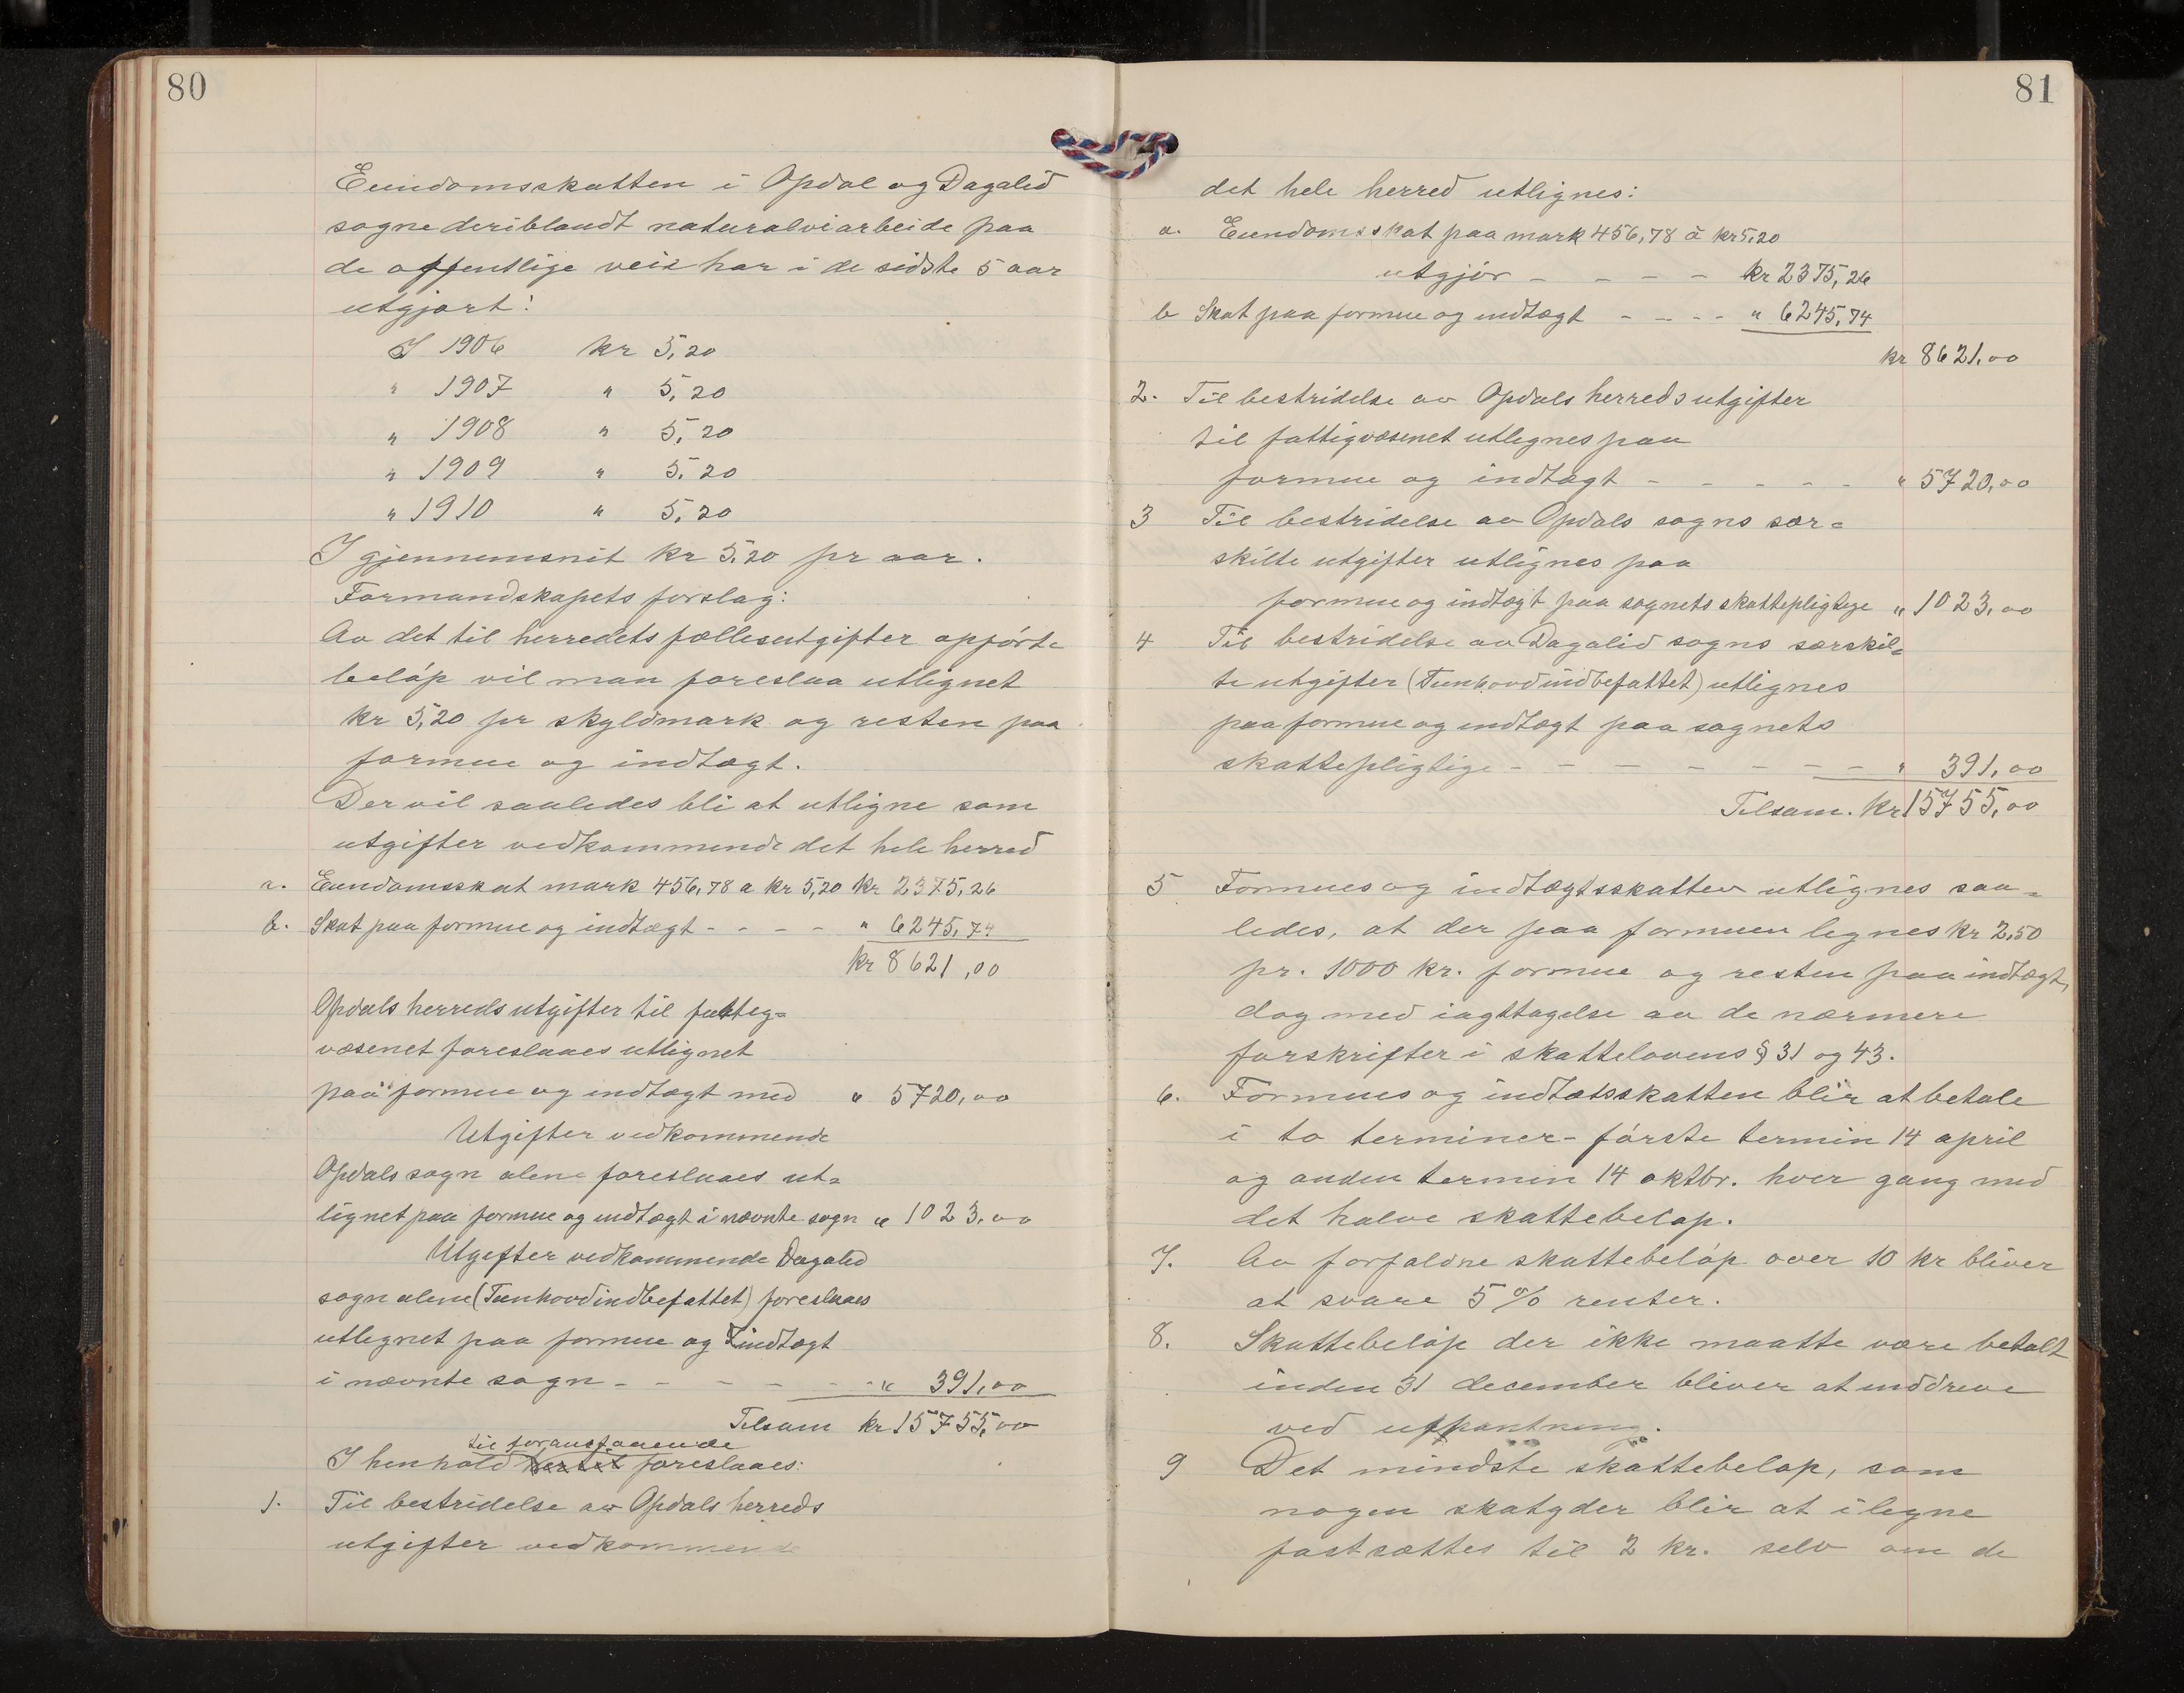 80
Eiendomsskatten i Opdal og Dagalid
sogne deriblandt naturalveiarbeide paa
de offentlige veie har i de sidste 5 aar
utgjort:
I 1906 kr 5,20
" 1907 " 5,20
" 1908 " 5,20
" 1909 " 5,20
" 1910 " 5,20
I gjennemsnit kr 5,20 pr aar.
Formandskapets forslag:
Av det til herredets fællesutgifter opførte
beløp vil man foreslaa utlignet
kr 5,20 pr skyldmark og resten paa
formue og indtægt.
Der vil saaledes bli at utligne som
utgifter vedkommende det hele herred
a. Eiendomsskat mark 456,78 a kr 5,20 kr 2375,26
b. Skat paa formue og indtægt - - - - " 6245,74
kr 8621,00
Opdals herreds utgifter til fatteg=
væsenet foreslaaes utlignet
paa formue og indtægt med " 5720,00
Utgifter vedkommende
Opdals sogn alene foreslaaes ut=
lignet paa formue og indtægt i nævnte sogn " 1023,00
Utgifter vedkommende Dagalid
sogn alene (Tunhovd indbefattet) foreslaaes
utlignet paa formue og indtægt
i nævnte sogn - - - - - - " 391,00
Tilsam kr 15755,00
til foranstaaende
I henhold hertil foreslaaes:
1. Til bestridelse av Opdals herreds
utgifter vedkommende
81
det hele herred utlignes:
a. Eiendomsskat paa mark 456,78 à kr 5,20
utgjør - - - - kr 2375,26
b Skat paa formue og indtægt - - - - " 6245,74
kr 8621,00
2. Til bestridelse av Opdals herreds utgifter
til fattigvæsenet utlignes paa
formue og indtægt - - - - - " 5720,00
3 Til bestridelse av Opdals sogns sær=
skilte utgifter utlignes paa
formue og indtægt paa sognets skattepligtige " 1023,00
4 Til bestridelse av Dagalid sogns særskil=
te utgifter (Tunhovd indbefattet) utlignes
paa formue og indtægt paa sognets
skattepligtige - - - - - - - - " 391,00
Tilsam. kr 15755,00
5 Formues og indtægtsskatten utlignes saa=
ledes, at der paa formuen lignes kr 2,50
pr. 1000 kr. formue og resten paa indtægt,
dog med iagttagelse av de nærmere
forskrifter i skattelovens § 31 og 43.
6. Formues og indtætsskatten blir at betale
i to terminer - første termin 14 april
og anden termin 14 oktbr. hver gang med
det halve skattebeløp.
7. Av forfaldne skattebeløp over 10 kr bliver
at svare 5 % renter.
8. Skattebeløp der ikke maatte være betalt
inden 31 december bliver at inddreve
ved utpantning.
9 Det mindste skattebeløp, som
nogen skatyder blir at ilegne
fastsættes til 2 kr. selv om de